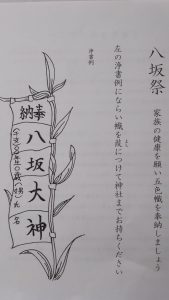 八坂祭
家族の健康を願い五色幟を奉納しましょう
左の浄書例にならい幟を葭につけて神社までお持ちください
よし
浄書例
奉納
八坂大神
(干支)〇〇年〇〇歳(男)氏名